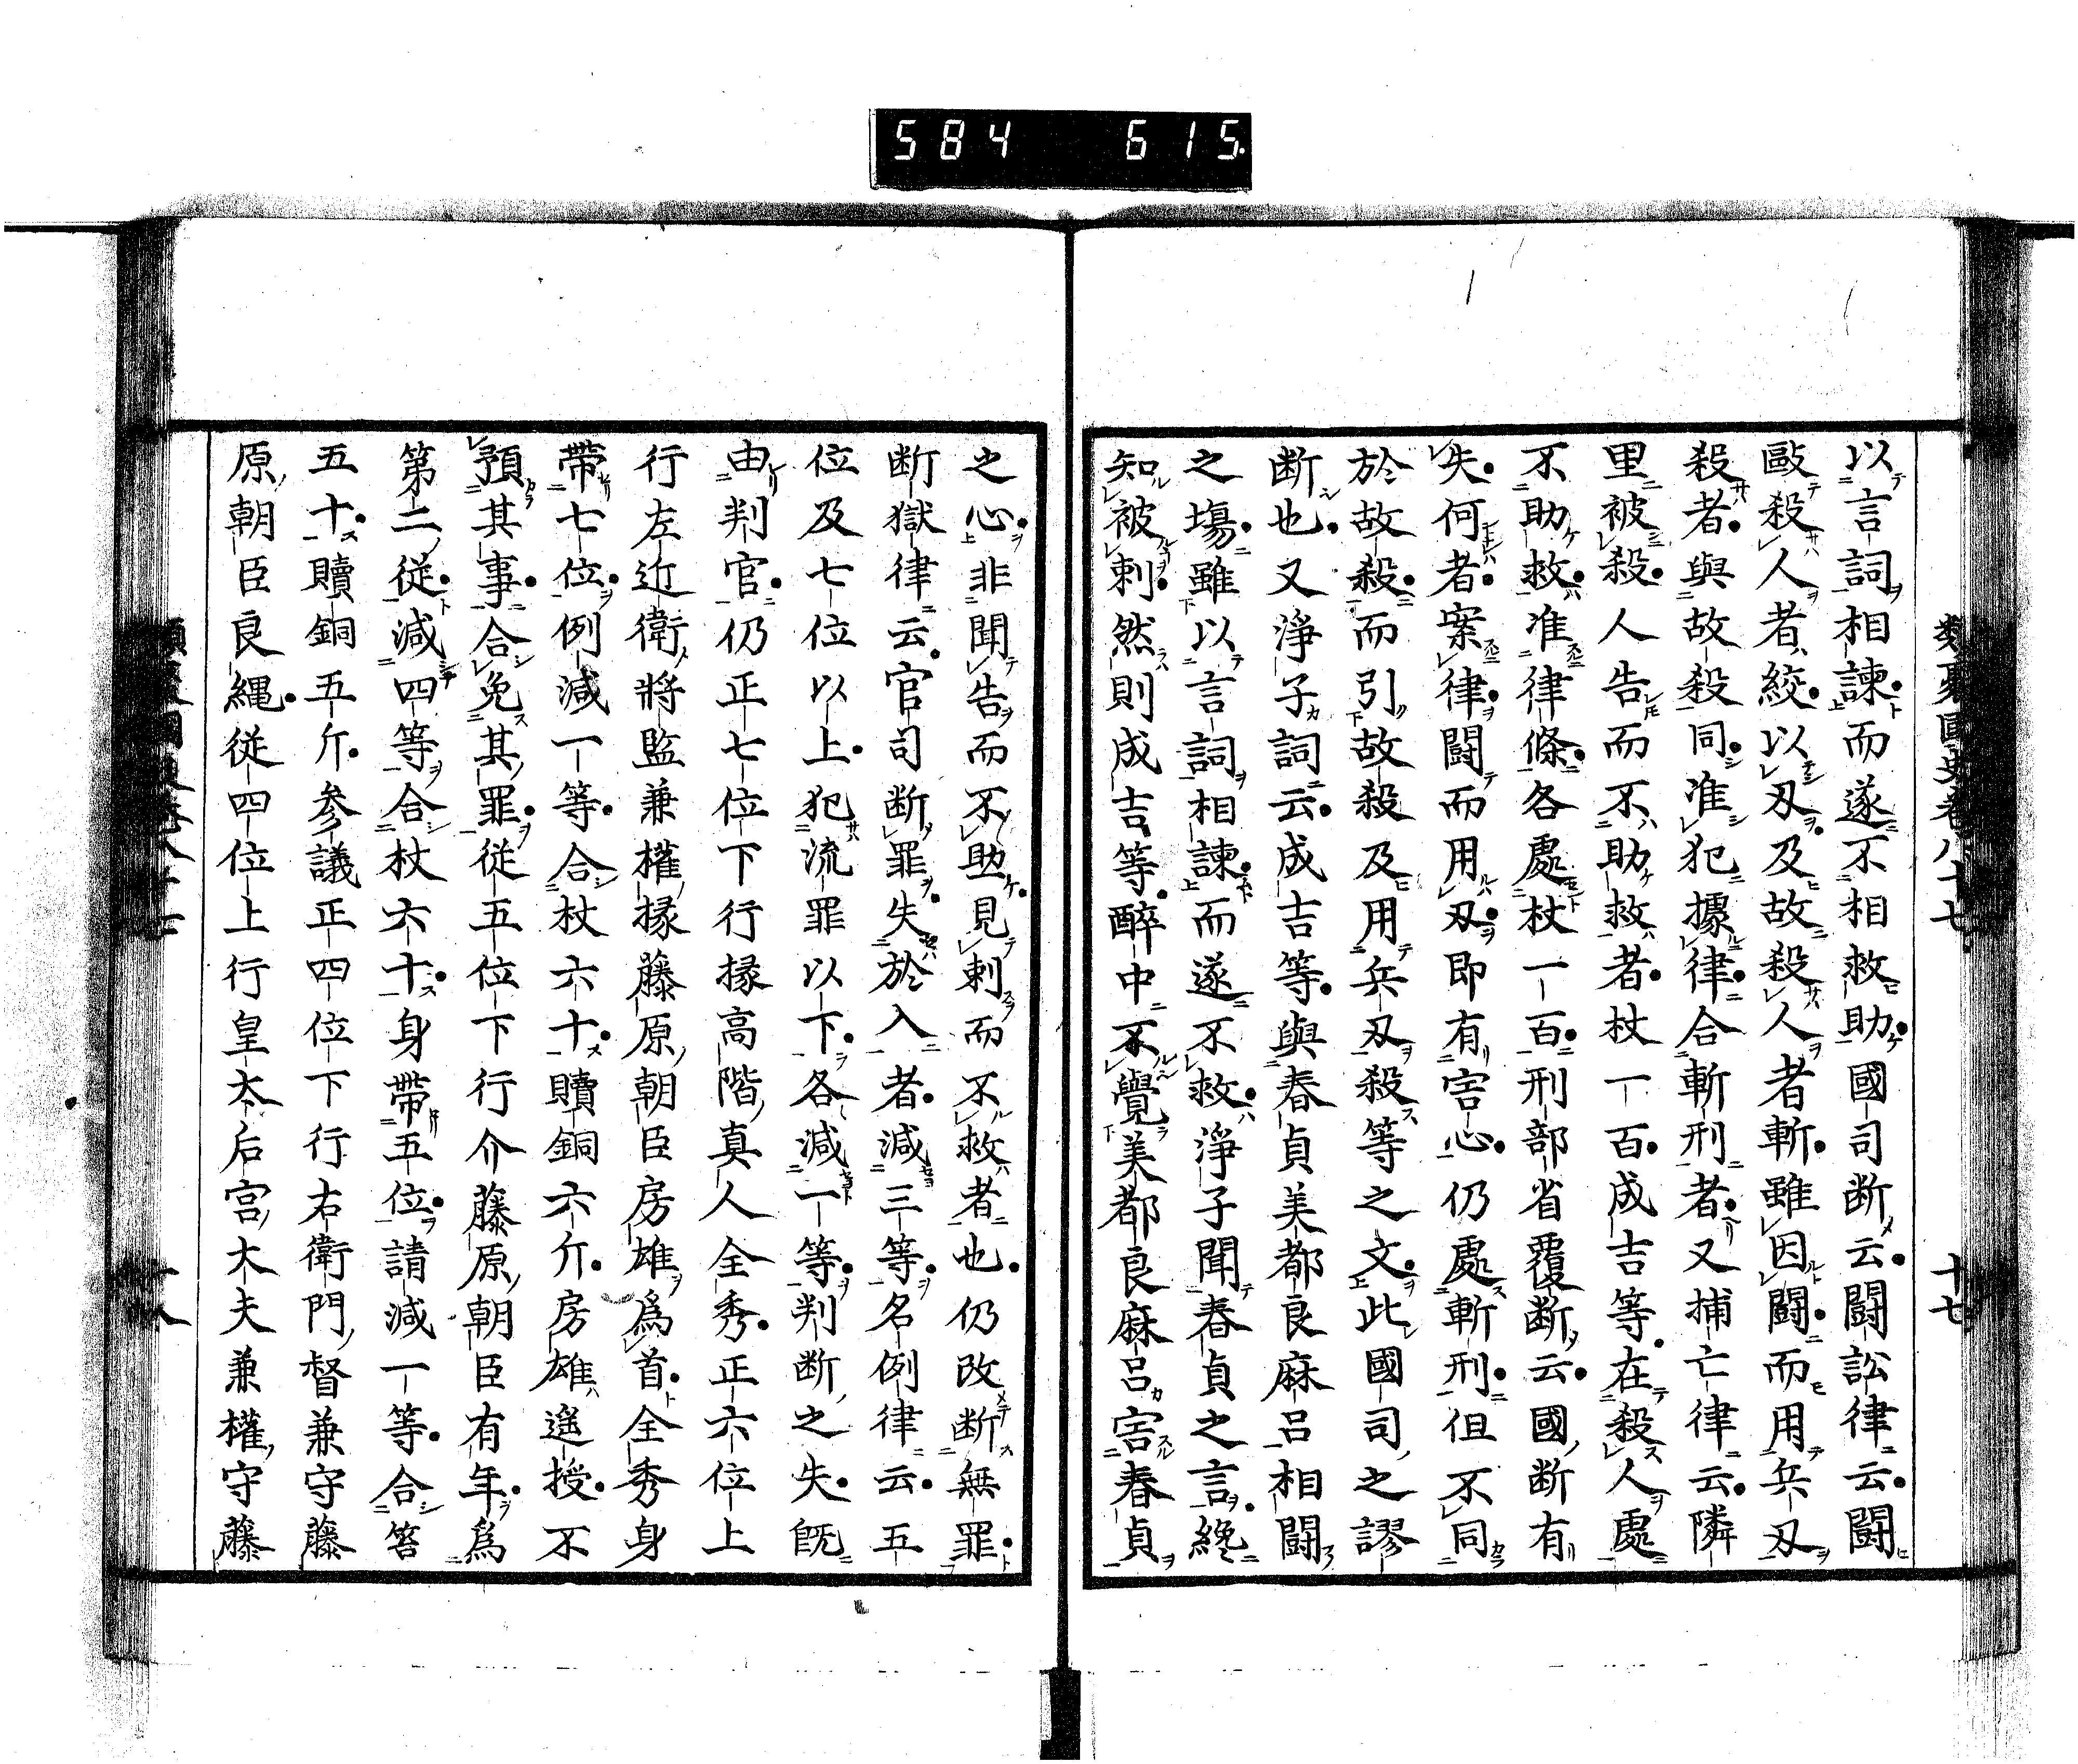 584 615
類聚國史卷八十七 十七
以言詞相諫而遂不相救助國司断云闘訟律云闘
毆殺人者絞以刃及故殺人者斬雖因闘而用兵刃
殺者與故殺同准犯據律合斬刑者又捕亡律云隣
里被殺人告而不助救者杖一百成吉等在殺人處
不助救准律條各處杖一百刑部省覆断云國断有
失何者案律闘而用刃即有害心仍處斬刑但不同
於故殺而引故殺及用兵刃殺等之文此國司之謬
断也又淨子詞云成吉等與春貞美都良麻呂相闘
之場雖以言詞相諫而遂不救淨子聞春貞之言纔
知被刺然則成吉等醉中不覺美都良麻呂害春貞
之心非聞告而不助見刺而不救者也仍改断無罪
断獄律云官司断罪失於入者減三等名例律云五
位及七位以上犯流罪以下各減一等判断之失既
由判官仍正七位下行掾高階真人全秀正六位上
行左近衛將監兼權掾藤原朝臣房雄爲首全秀身
帶七位例減一等合杖六十贖銅六斤房雄遥授不
預其事合免其罪從五位下行介藤原朝臣有年爲
第二從減四等合杖六十身帶五位請減一等合笞
五十贖銅五斤参議正四位下行右衛門督兼守藤
原朝臣良縄従四位上行皇太后宮大夫兼權守藤